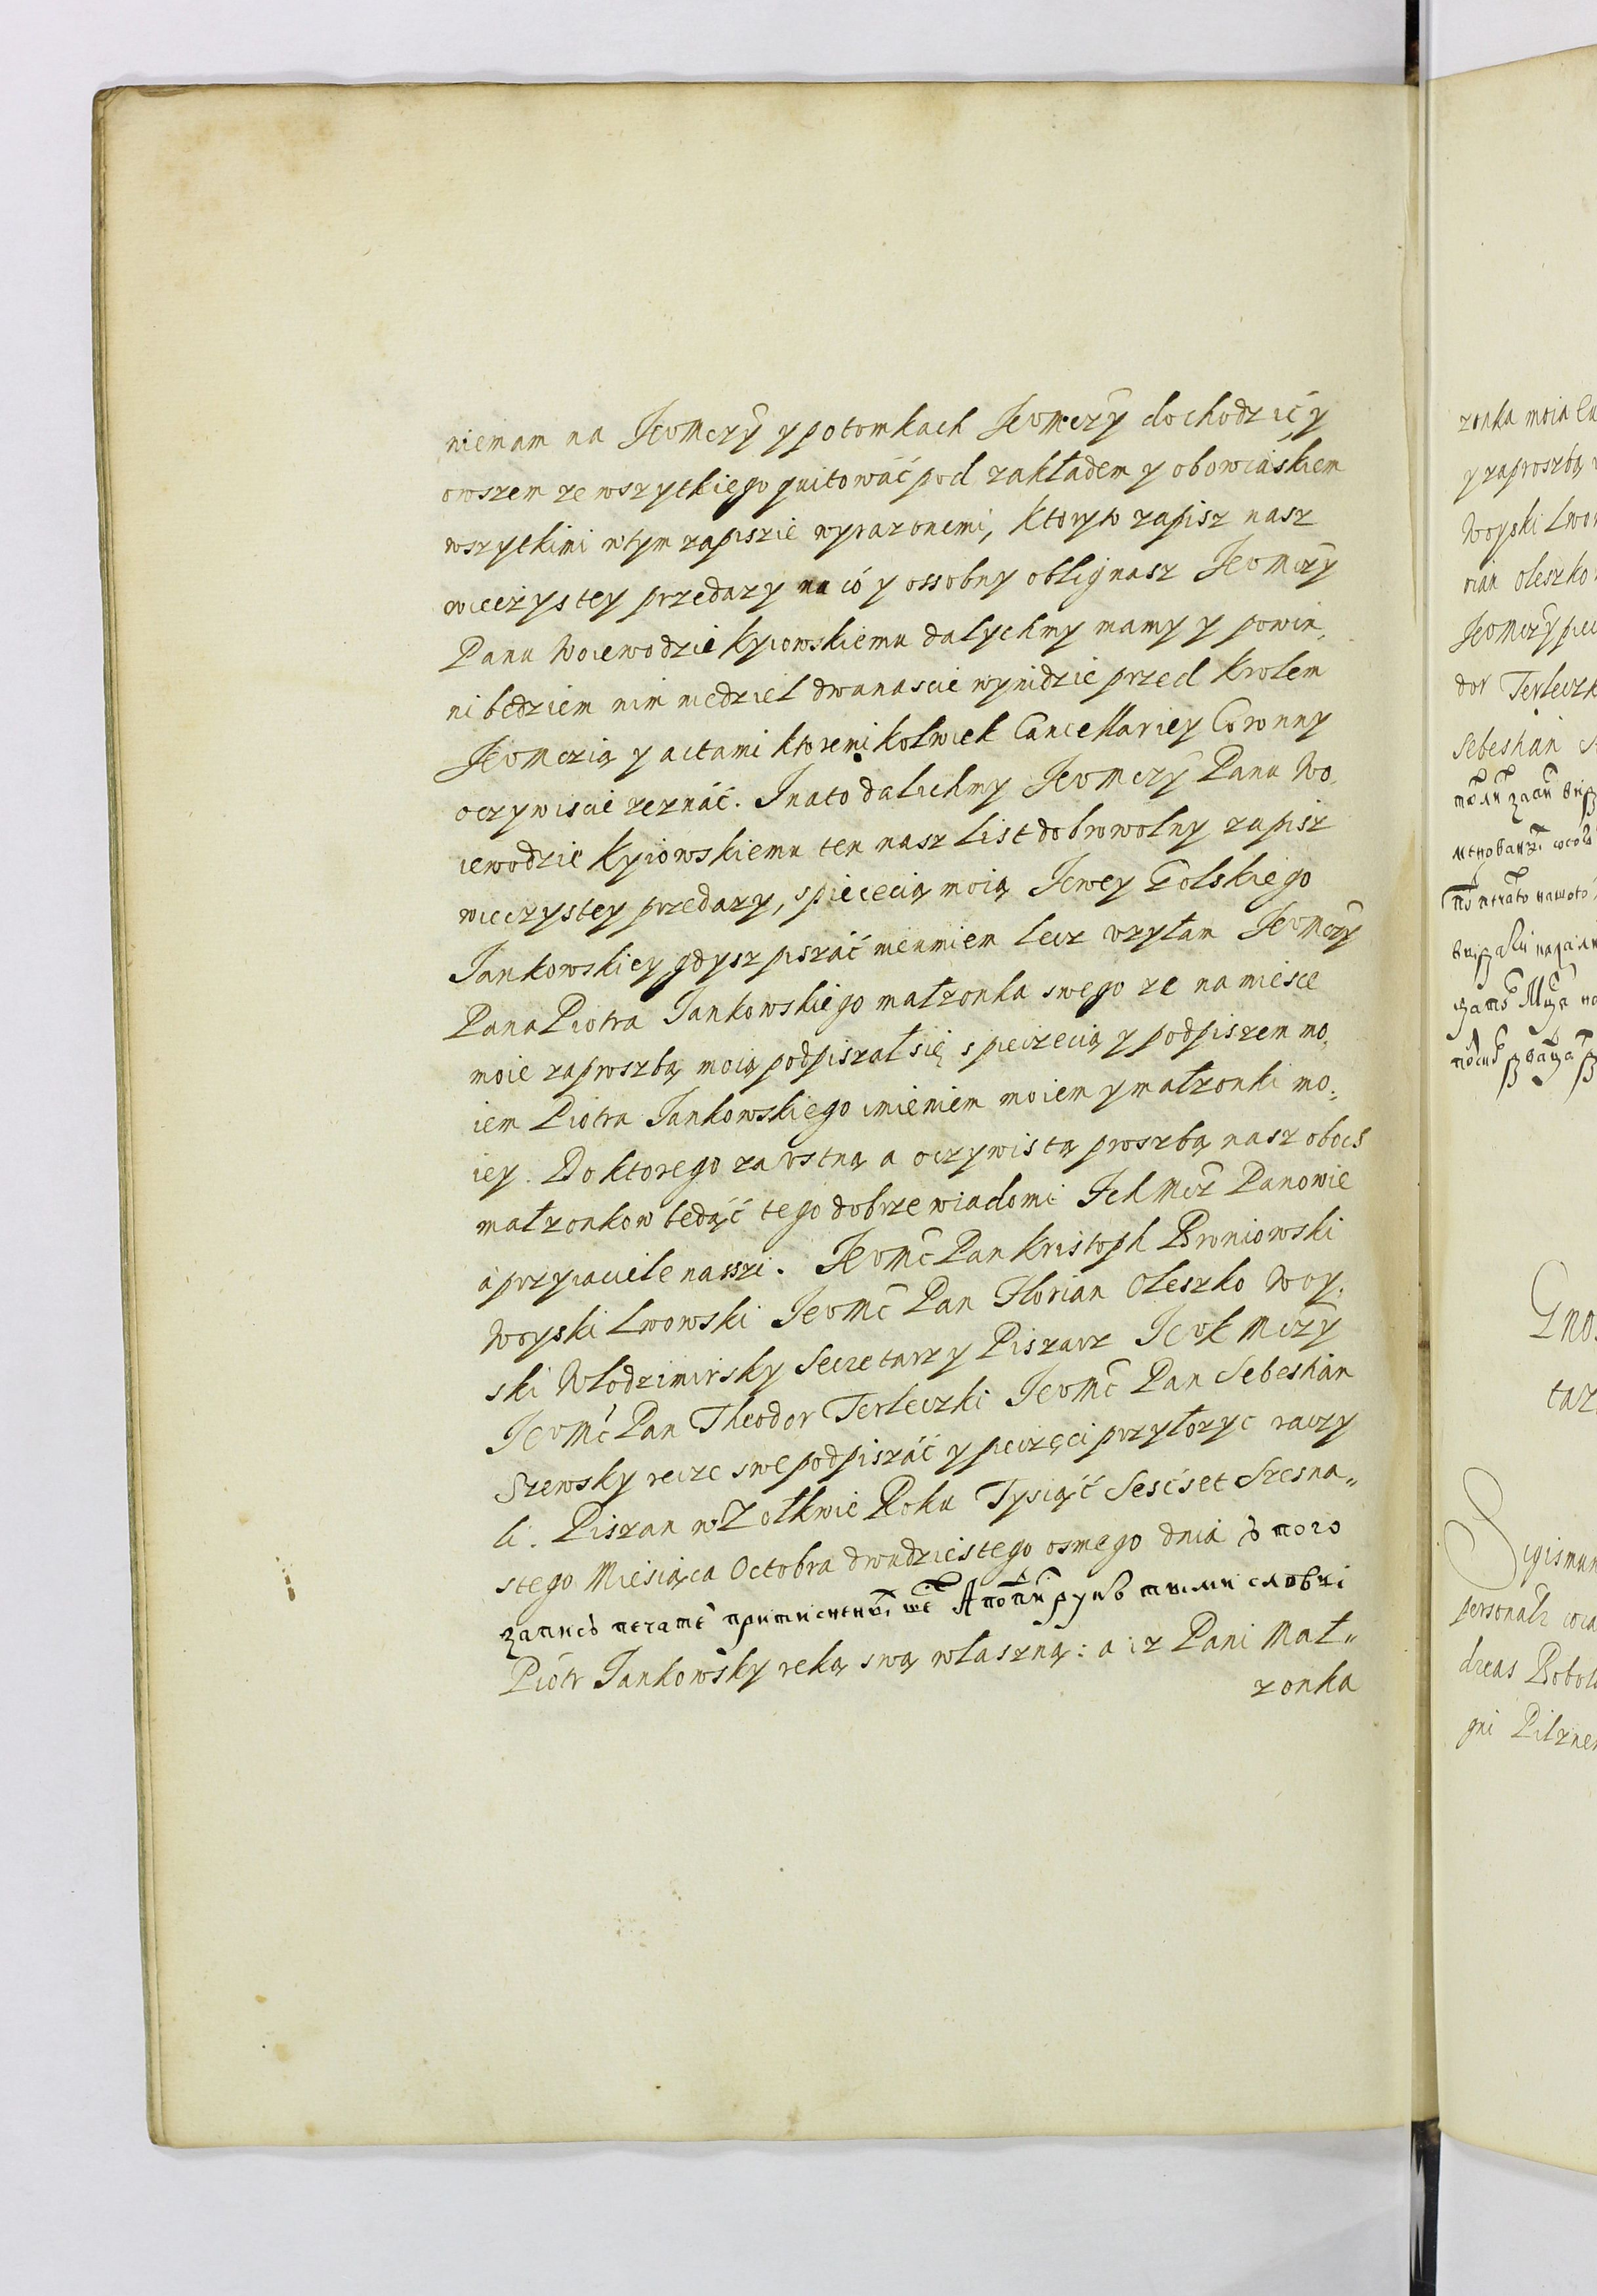 niemam na Jeomczÿ y potomkach Jeomczy dochodzić y
owszem ze wszytkiego quitowáć pod zakładem y obowiáskiem
wszytkimi wtym zapiszie wyrazonemi, Ktoryto zapisz nasz
wieczystey przedazy na có y ossobny oblig nasz Jeomczÿ
Panu Woiewodzie Kyiowskiemu dalychmy mamy y powin,
ni będziem nim niedziel dwanascie wynidzie przed Krolem
Jeomczią y actami ktoremikolwiek Cancellariey Coronny
oczywiscie zeznáć. I nato dalichmy Jeomczÿ Panu Wo,
iewodzie Kyiowskiemu ten nasz List dobrowolny zapisz
wieczystey przedazy, s pieczecią moią Jewey Golskiego
Jankowskiey gdysz piszáć nieumiem lecz uzyłam Jeomczÿ
Pana Piotra Jankowskiego małzonka swego ze na miesce
moie za proszbą moią podpiszał się s pieczecią y podpiszem mo,
iem Piotra Jankowskiego imieniem moiem y małzonki mo,
iey. Do ktorego za ustną a oczywistą proszbą nasz oboiś
małzonkow będąć tego dobrze wiadomi Ich Mcz Panowie
a przyiaciele nasszi. Jeomć Pan Kristoph Broniowski
Woyski Lwowski Jeomć Pan Florian Oleszko Woy,
ski Włodzimirsky Secretarz y Piszarz Jeok Mczy
Jeomć Pan Theodor Terleczki Jeomć Pan Sebeshan
Szewsky recze swe podpiszáć y pieczęci przyłozyc raczy
li. Piszan w Zołkwie Roku Tysiąć Sescset Szesna„
stego Miesiąca Octobra dwudziestego osmego dnia ὸ того
записѣ печате притисненыⷯ А поⷣпиⷭ рукъ тыми словы
Piótr Jankowsky ręką swą własną: a iz Pani Mał„
zonka
zonka moia
y zaproszbą
Woyski Lwow
rian Oleszko
Jeomczÿ piecz
dor Terleczk
Sebeshan
Gno
taz
Sigismun
personalr
dreas Bobol
gni Pilzne